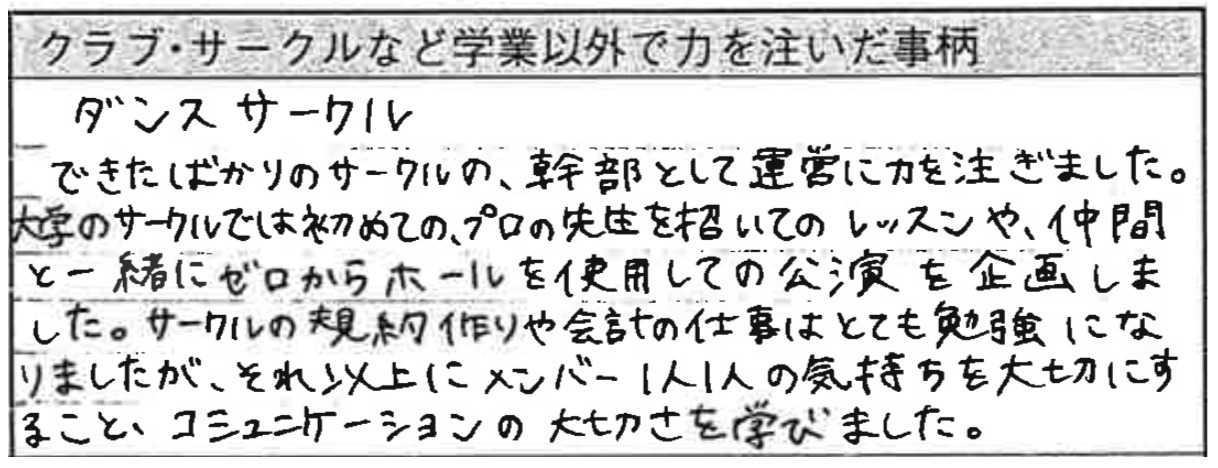 クラブ・サークルなど学業以外で力を注いだ事柄
ダンスサークル
できたばかりのサークルの、幹部として運営に力を注ぎました。
大学のサークルでは初めての、プロの先生を招いてのレッスンや、仲間
と一緒にゼロからホールを使用しての公演を企画しま
した。サークルの規約作りや会計の仕事はとても勉強にな
りましたが、それ以上にメンバー1人1人の気持ちを大切にす
ること、コミュニケーションの大切さを学びました。